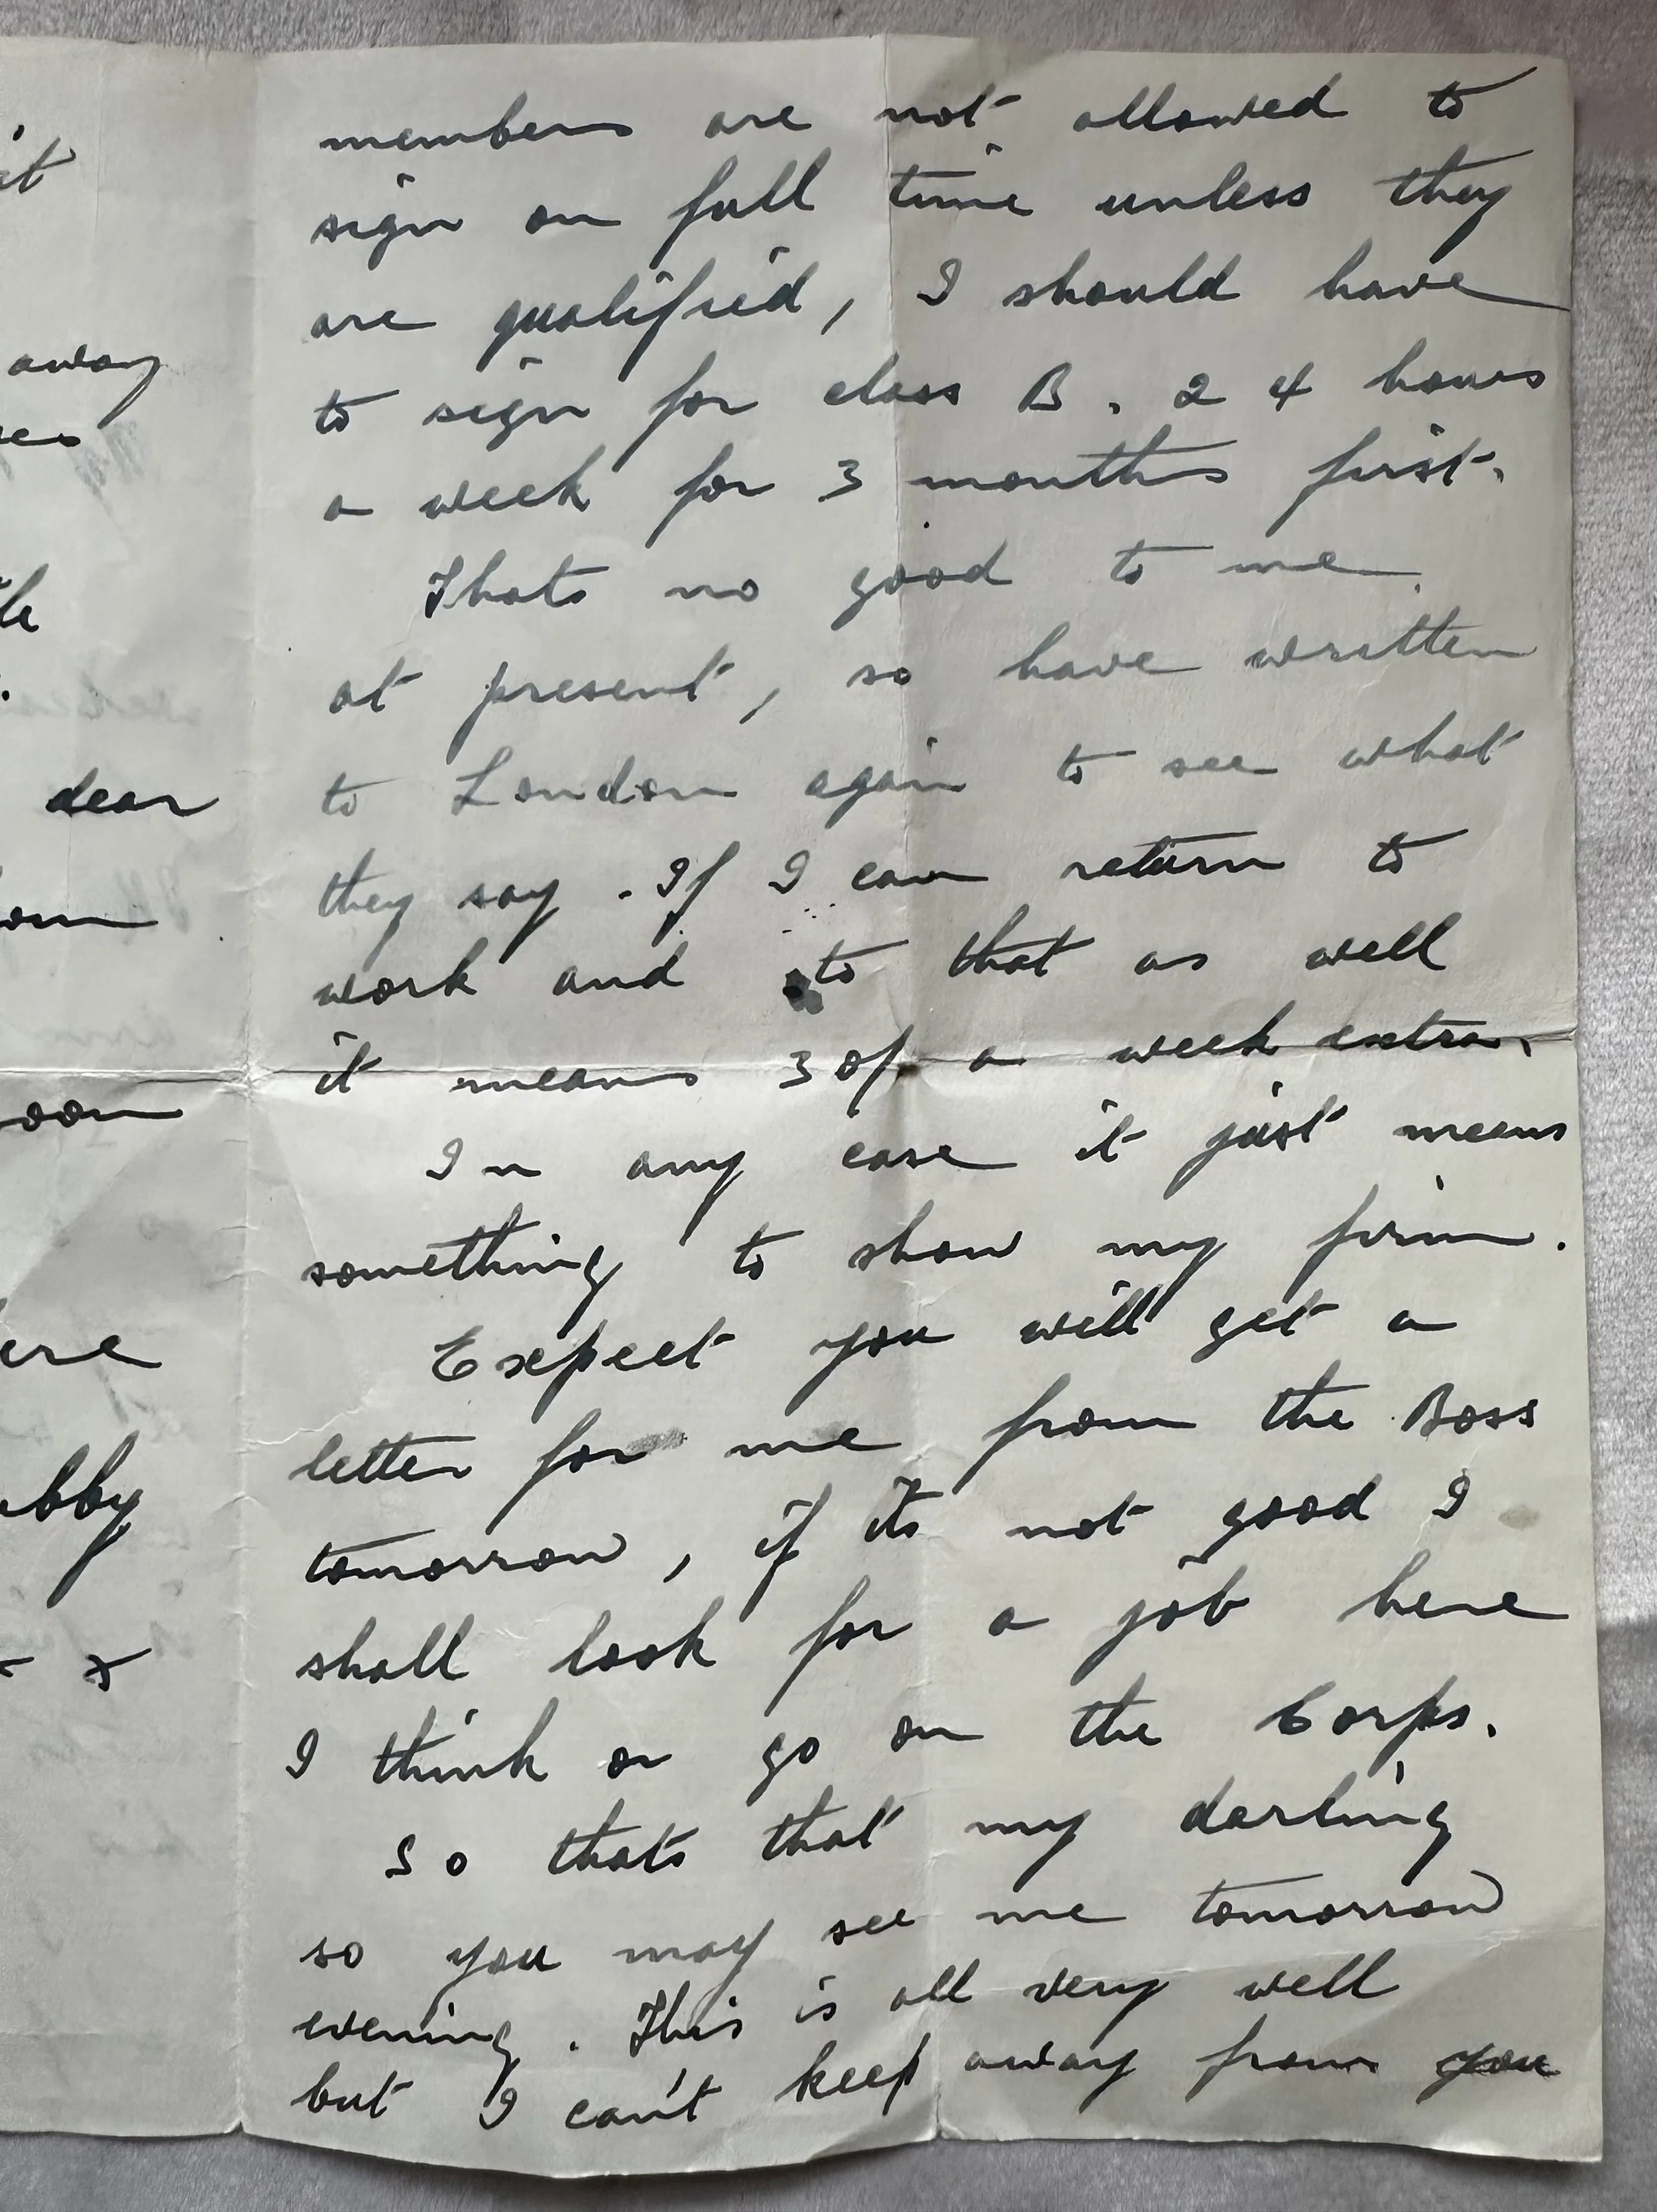 it
away
dear
oon
ere
bby
x
members are not allowed to
sign on full time unless they
are qualified, I should have
to sign for class B. 24 hours
a week for 3 months first.
Thats no good to me
at present, so have written
to London again to see what
they say. If I can return to
work and to that as well
it means 30/ a week extra.
In any case it just means
something to show my firm.
Expect you will get a
letter for me from the Boss
tomorrow, if its not good I
shall look for a job here
I think or go on the Corps.
So thats that my darling
so you may see me tomorrow
evening. This is all very well
but I can't keep away from you